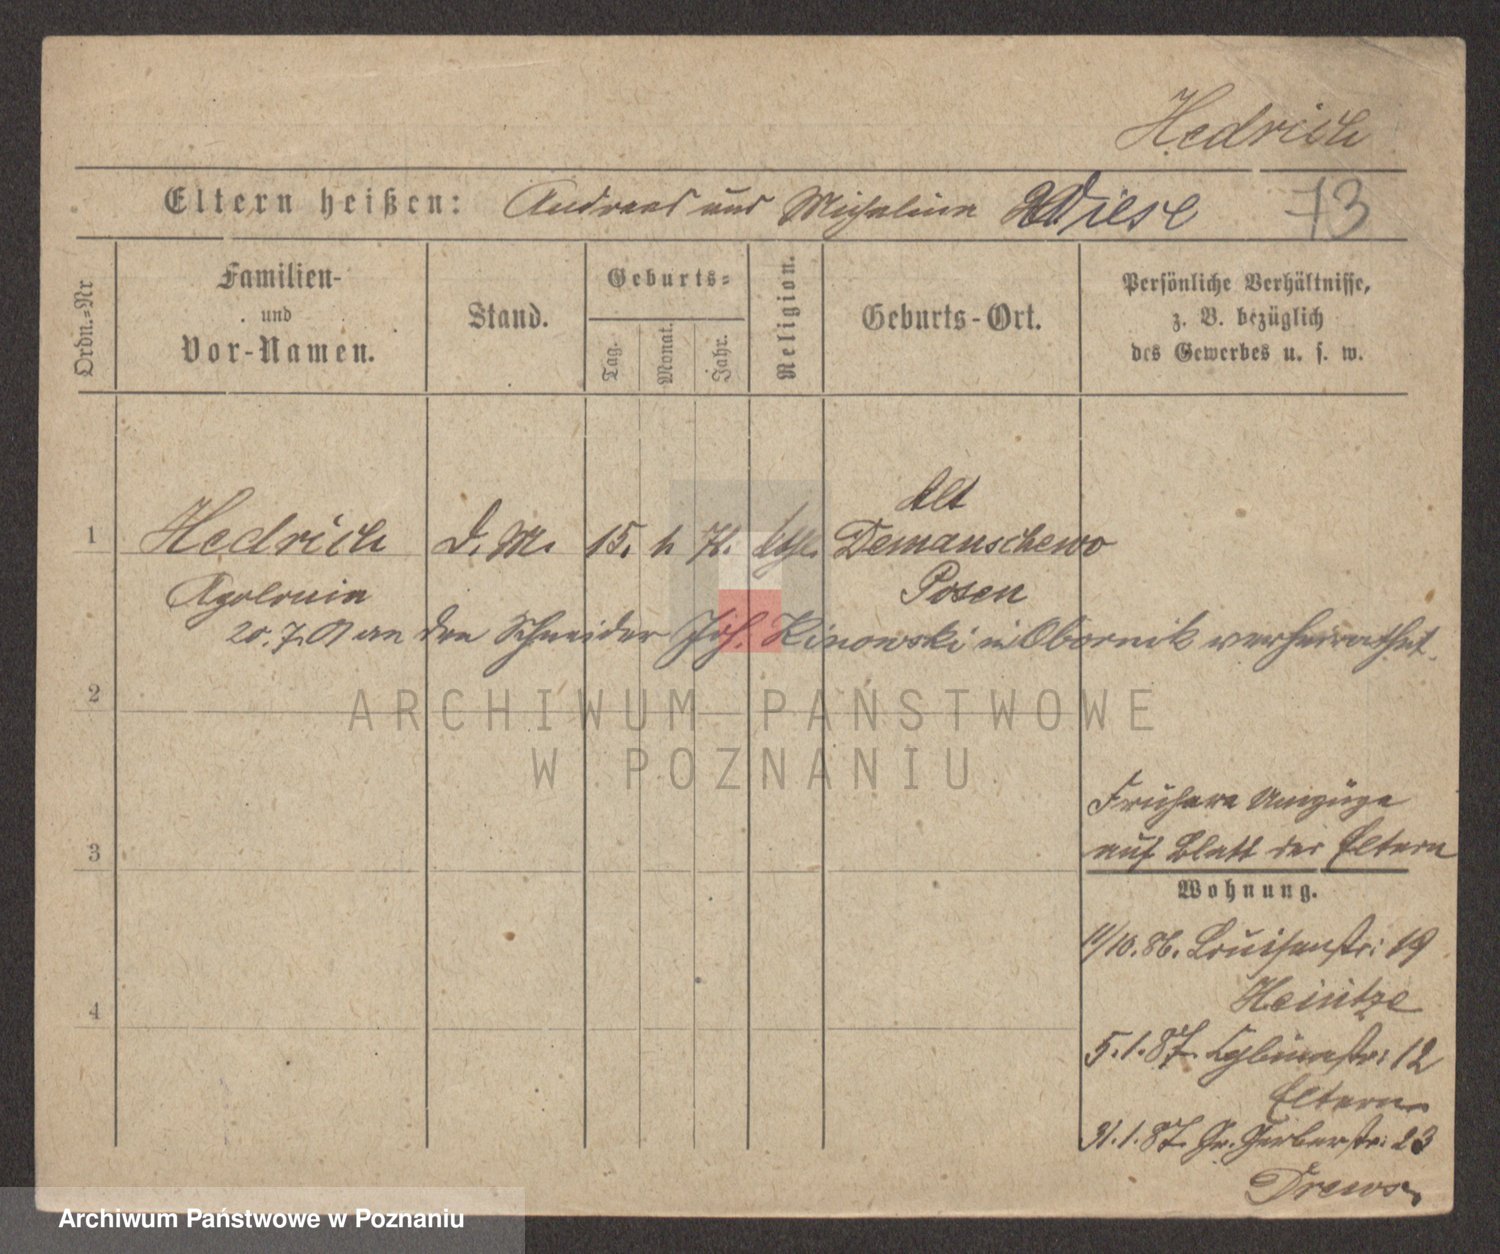 Hedrich
Eltern heißen: Andreas und Michalina Wiese 73
Ordn.=Nr
Familien- und Vor-Namen.
Stand.
Geburts=
Tag.
Monat.
Jahr.
Religion.
Geburts-Ort.
Persönliche Verhältnisse,
z. B. bezüglich
des Gewerbes u. s. w.
Alt
1 Hedrich D. M. 15. 71. Demanschewo
Apolonia Posen
20. 7. 01 an den Schneider Joh. Kinowski in Obornik verheirathet.
2
ARCHIWUM PAŃSTWOWE
W POZNANIU
Frühere Umzüge
3 auf Blatt der Eltern
Wohnung.
11/10. 86. Louisenstr: 19
Heintze
4
5. 1. 87. 12
Eltern
31. 1. 87. Gr. Gerberstr: 23
Drews
Archiwum Państwowe w Poznaniu